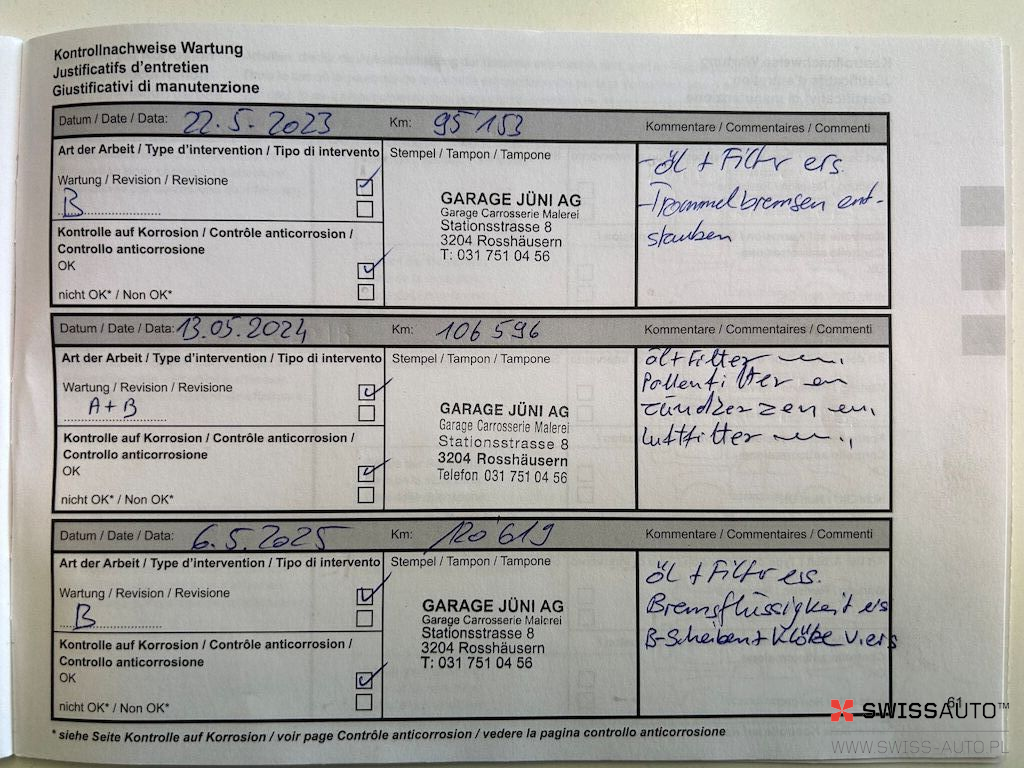 Kontrollnachweise Wartung
Justificatifs d'entretien
Giustificativi di manutenzione
Datum / Date / Data: 22.5.2023 Km: 95'153 Kommentare / Commentaires / Commenti
Art der Arbeit / Type d'intervention / Tipo di intervento Stempel / Tampon / Tampone
Wartung / Revision / Revisione
B
Kontrolle auf Korrosion / Contrôle anticorrosion /
Controllo anticorrosione
OK
nicht OK* / Non OK*
GARAGE JÜNI AG
Garage Carrosserie Malerei
Stationsstrasse 8
3204 Rosshäusern
T: 031 751 04 56
- Öl + Filtr ers.
- Trommelbremsen ent-
stauben
Datum / Date / Data: 13.05.2024 Km: 106 596 Kommentare / Commentaires / Commenti
Art der Arbeit / Type d'intervention / Tipo di intervento Stempel / Tampon / Tampone
Wartung / Revision / Revisione
A + B
Kontrolle auf Korrosion / Contrôle anticorrosion /
Controllo anticorrosione
OK
nicht OK* / Non OK*
GARAGE JÜNI AG
Garage Carrosserie Malerei
Stationsstrasse 8
3204 Rosshäusern
Telefon 031 751 04 56
Öl + Filter
Pollenfilter
Zündkerzen
Luftfilter
Datum / Date / Data: 6.5.2025 Km: 120'619 Kommentare / Commentaires / Commenti
Art der Arbeit / Type d'intervention / Tipo di intervento Stempel / Tampon / Tampone
Wartung / Revision / Revisione
B
Kontrolle auf Korrosion / Contrôle anticorrosion /
Controllo anticorrosione
OK
nicht OK* / Non OK*
GARAGE JÜNI AG
Garage Carrosserie Malerei
Stationsstrasse 8
3204 Rosshäusern
T: 031 751 04 56
Öl + Filtr ers.
Bremsflüssigkeit ers
B-Scheiben + Klötze v. ers
61
* siehe Seite Kontrolle auf Korrosion / voir page Contrôle anticorrosion / vedere la pagina controllo anticorrosione
SWISSAUTO™
WWW.SWISS-AUTO.PL